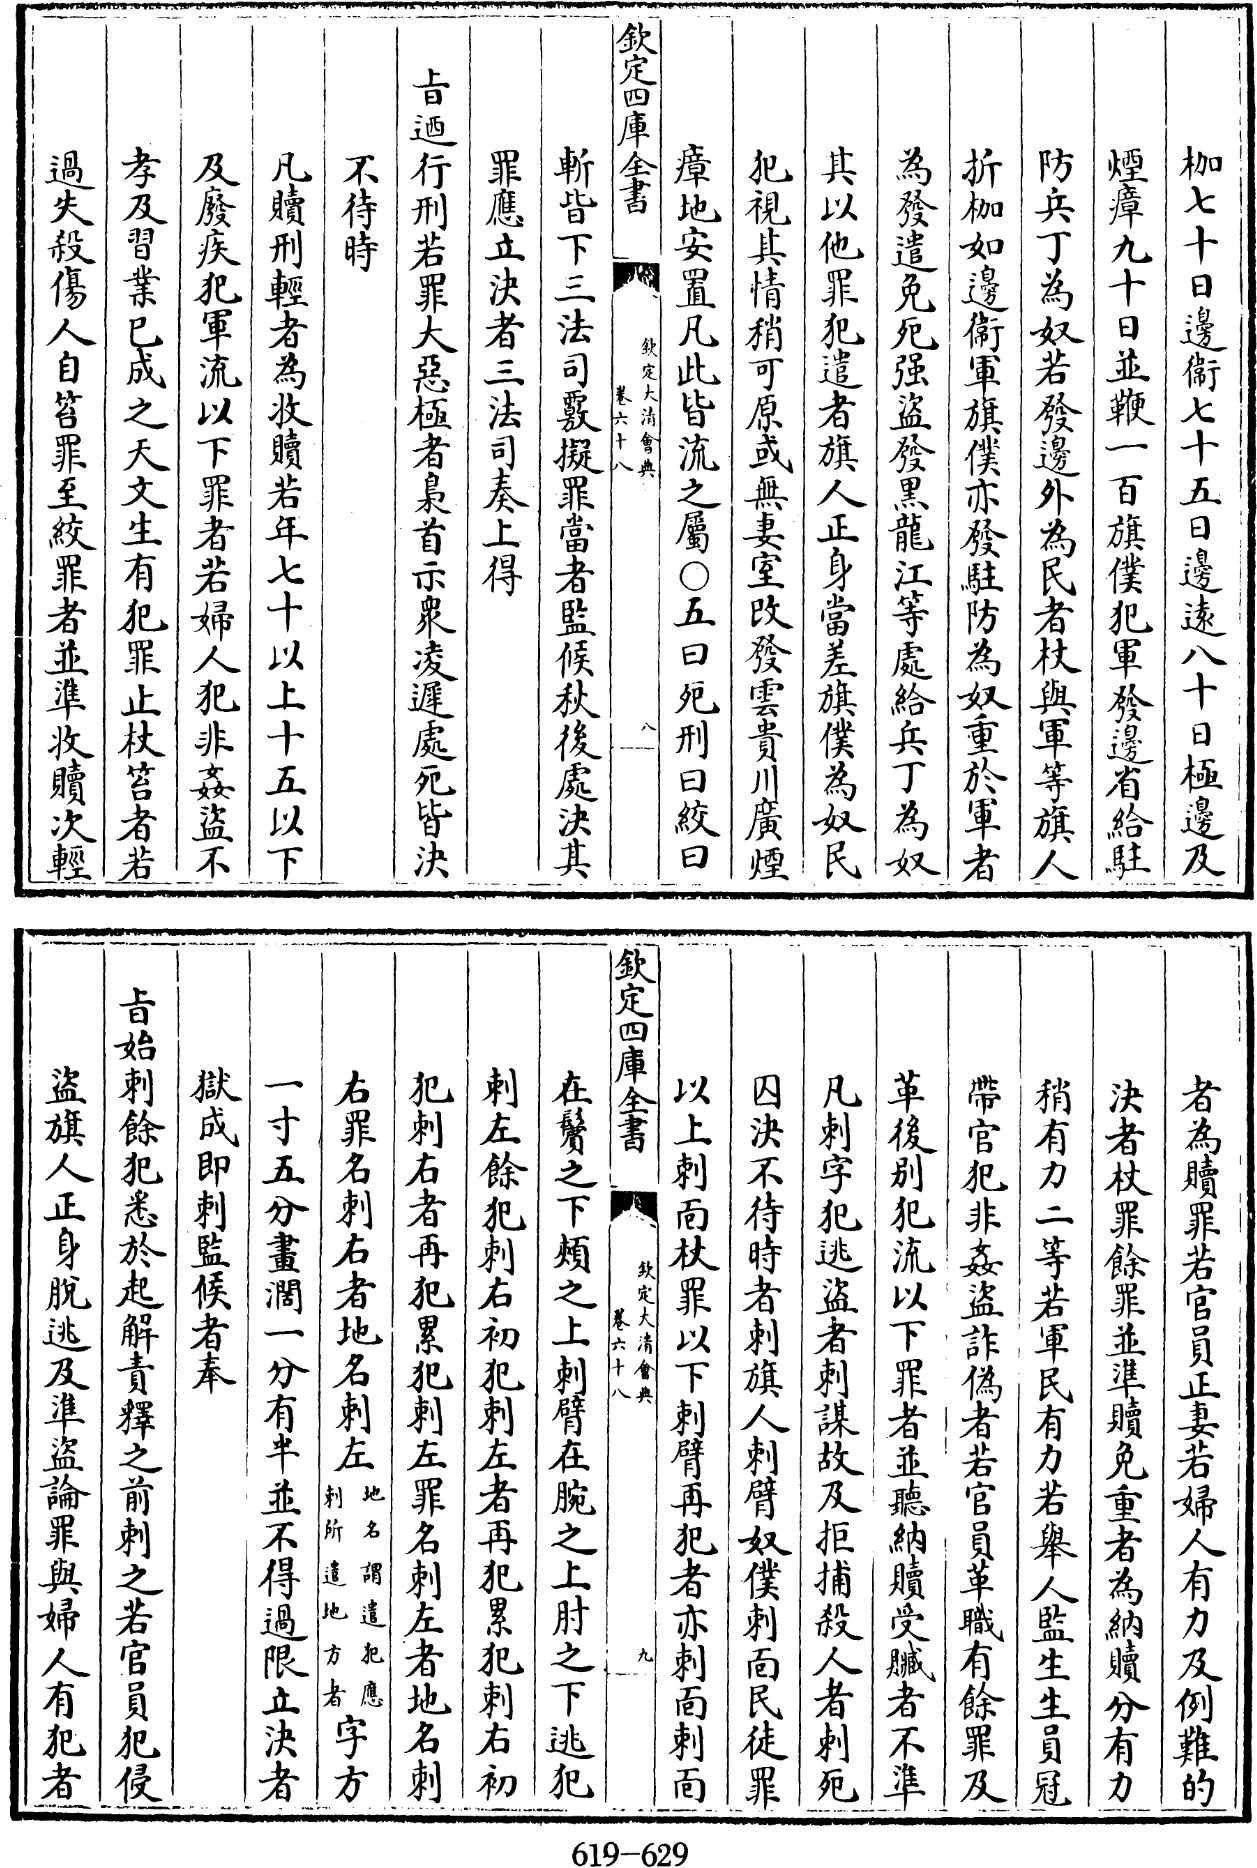 枷七十日邊衞七十五日邊遠八十日極邊及
煙瘴九十日並鞭一百旗僕犯軍發邊省給駐
防兵丁為奴若發邊外為民者杖與軍等旗人
折枷如邊衞軍旗僕亦發駐防為奴重於軍者
為發遣免死强盜發黑龍江等處給兵丁為奴
其以他罪犯遣者旗人正身當差旗僕為奴民
犯視其情稍可原或無妻室改發雲貴川廣煙
瘴地安置凡此皆流之屬○五曰死刑曰絞曰
欽定四庫全書
欽定大清會典
卷六十八
八
斬皆下三法司覈擬罪當者監候秋後處決其
罪應立決者三法司奏上得
旨迺行刑若罪大惡極者梟首示衆凌遲處死皆決
不待時
凡贖刑輕者為收贖若年七十以上十五以下
及廢疾犯軍流以下罪者若婦人犯非姦盜不
孝及習業已成之天文生有犯罪止杖笞者若
過失殺傷人自笞罪至絞罪者並準收贖次輕
者為贖罪若官員正妻若婦人有力及例難的
決者杖罪餘罪並準贖免重者為納贖分有力
稍有力二等若軍民有力若舉人監生生員冠
帶官犯非姦盜詐偽者若官員革職有餘罪及
革後别犯流以下罪者並聽納贖受贓者不準
凡刺字犯逃盜者刺謀故及拒捕殺人者刺死
囚決不待時者刺旗人刺臂奴僕刺面民徒罪
以上刺面杖罪以下刺臂再犯者亦刺面刺面
欽定四庫全書
欽定大清會典
卷六十八
九
在鬢之下頰之上刺臂在腕之上肘之下逃犯
刺左餘犯刺右初犯刺左者再犯累犯刺右初
犯刺右者再犯累犯刺左罪名刺左者地名刺
右罪名刺右者地名刺左地名謂遣犯應刺所遣地方者字方
一寸五分畫濶一分有半並不得過限立決者
獄成即刺監候者奉
旨始刺餘犯悉於起解責釋之前刺之若官員犯侵
盜旗人正身脫逃及準盜論罪與婦人有犯者
619-629